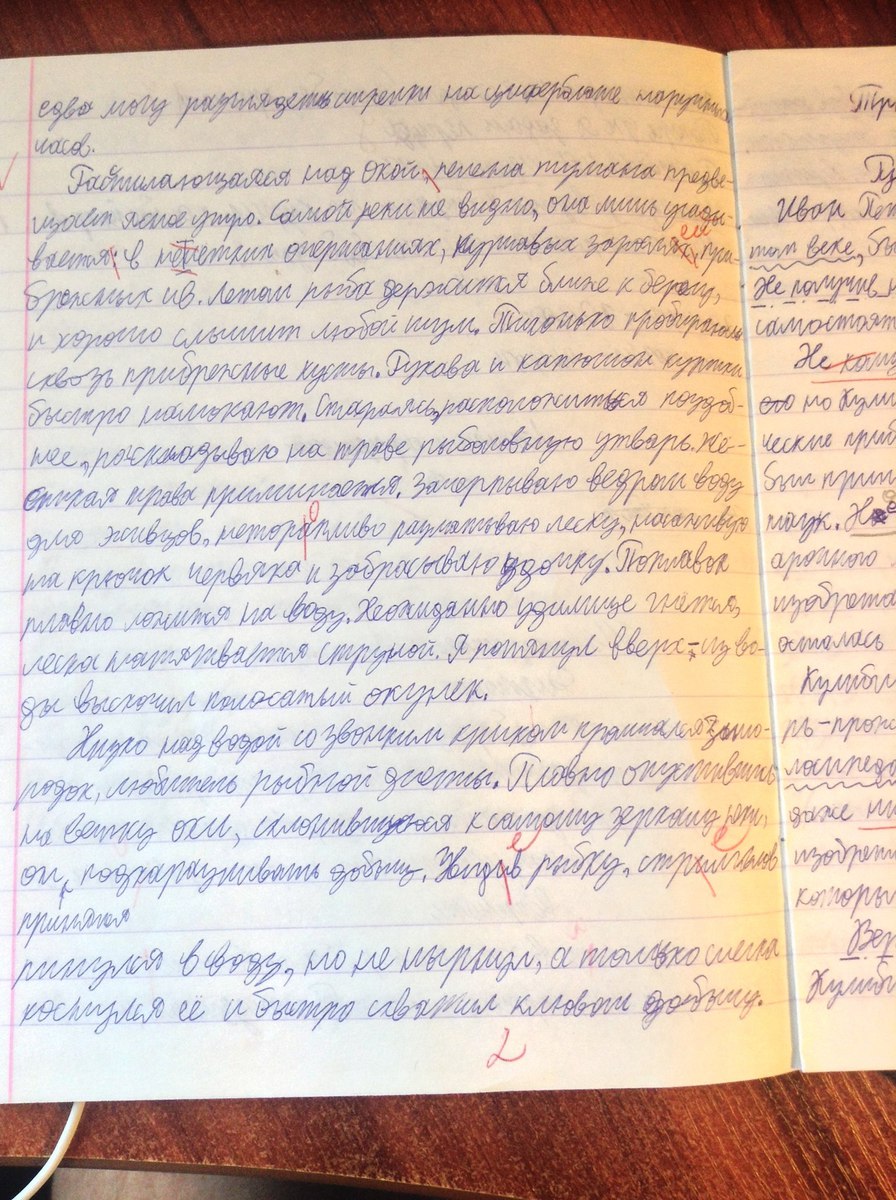 едва могу разглядеть стрелки на циферблате наручных
часов.
Расстилающаяся над Окой, пелена тумана предве-
щает ясное утро. Самой реки не видно, она лишь угады-
вается: в нечетких очертаниях, курчавых зарослях, при-
брежных ив. Летом рыба держится ближе к берегу,
и хорошо слышит любой шум. Тихонько пробираюсь
сквозь прибрежные кусты. Рукава и капюшон куртки
быстро намокают. Стараясь, расположиться поудоб-
нее, раскладываю на траве рыболовную утварь. Же-
сткая трава приминается. Зачерпываю ведром воду
для живцов, неторапливо разматываю леску, насаживаю
на крючок червяка и забрасываю удочку. Поплавок
плавно ложится на воду. Неожиданно удилище гнётся,
леска натягивается струной. Я потянул вверх-из во-
ды выскочил полосатый окунёк.
Низко над водой со звонким криком промчался зимо-
родок, любитель рыбной диеты. Плавно опустившись
на ветку ольхи, склонившуюся к самому зеркалу реки,
он, подкарауливать добычу. Увидив рыбку,
принялся
ринулся в воду, но не нырнул, а только слегка
коснулся её и быстро схватил клювом добычу.
2
Иван
том веке, бы
Не получив
самостоят
Не
но Кули
ческие приб
был приг
наук.
изобрета
осталась
Кулиби
даже
изобрет
которы
Вер
Кулиб